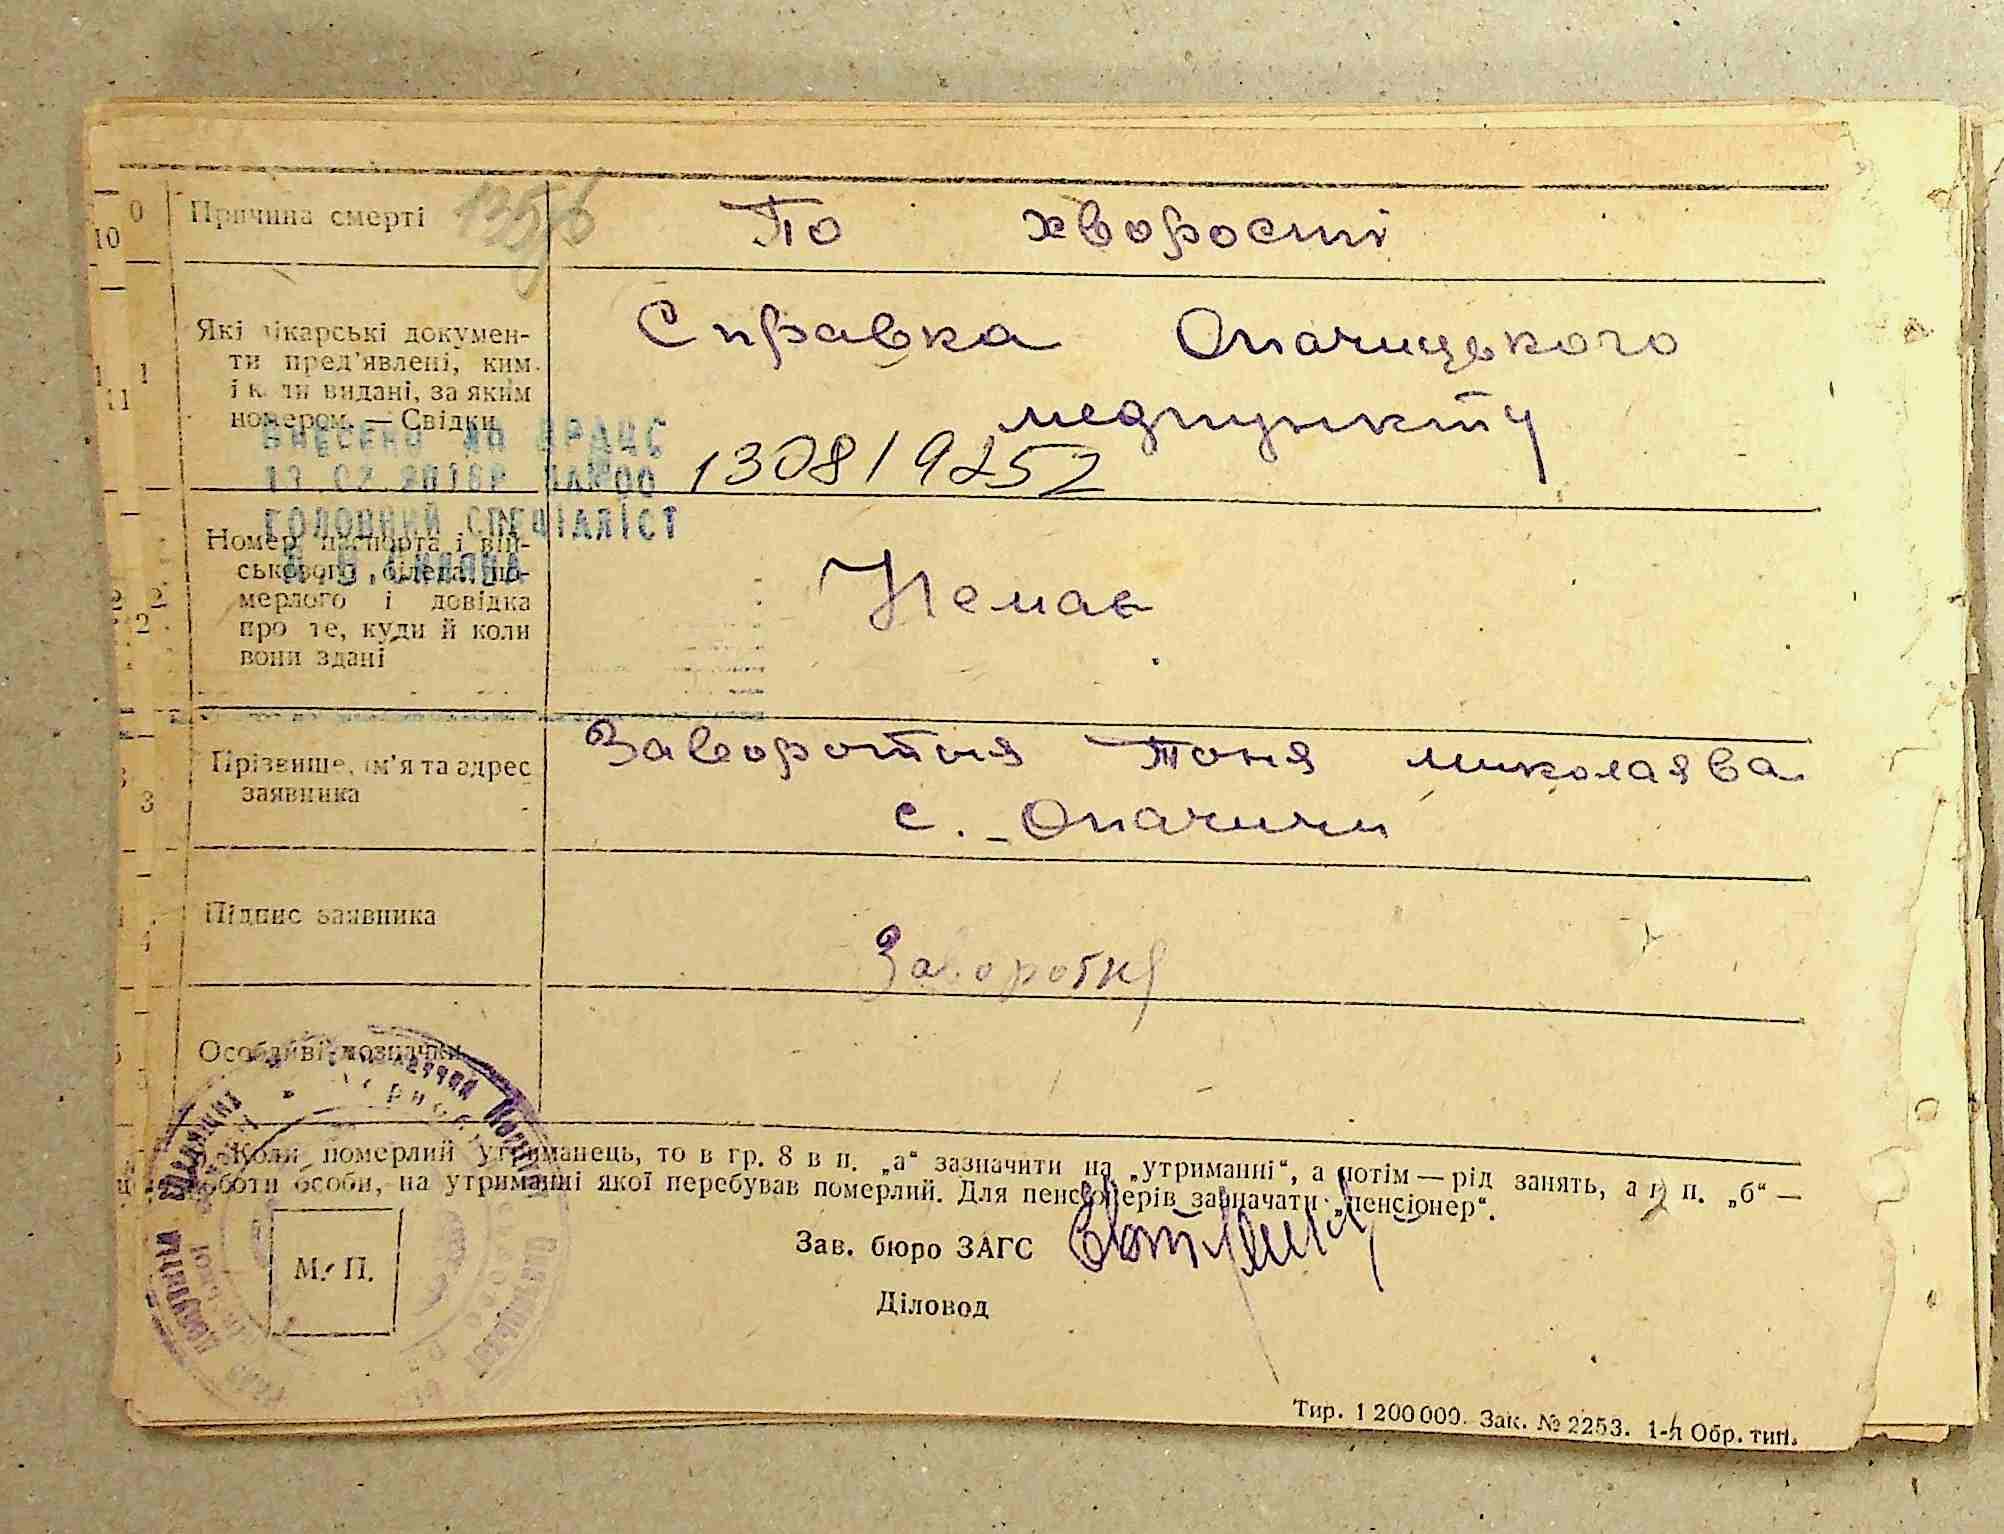 0
10
Причина смерті
По хворости
Які лікарські докумен-
ти пред'явлені, ким
і коли видані, за яким
номером. — Свідки
Справка Опачицького
медпункту
130819252
1 1
11
ВНЕСЕНО ДО ДРАЦС
ГОЛОВНИЙ СПЕЦІАЛІСТ
Номер паспорта і вій-
ськового білета по-
мерлого і довідка
про те, куди й коли
вони здані
Немає
2 2
2
Прізвище, ім'я та адрес
заявника
Заворотня Тоня миколаява
с. Опачичи
3
3
Підпис заявника
Заворотня
Особливі дозначки
Коли померлий утриманець, то в гр. 8 в п. „а“ зазначити на „утриманні“, а потім — рід занять, а в п. „б“ —
роботи особи, на утриманні якої перебував померлий. Для пенсіонерів зазначати „пенсіонер“.
М. П.
Зав. бюро ЗАГС
Діловод
Тир. 1 200 000. Зак. № 2253. 1-я Обр. тип.